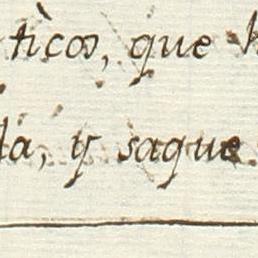 ticos, que
la, y saque